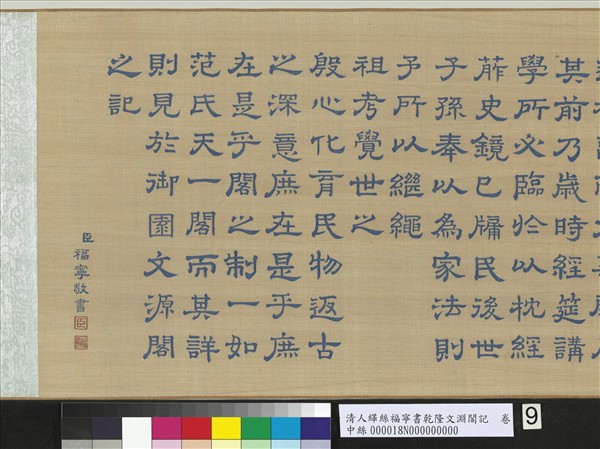 其前乃歲時經筵講
學所必臨於以枕經
葄史鏡己牖民後世
子孫奉以為家法則
予所以繼繩
祖考覺世之
殷心化育民物返古
之深意庶在是乎庶
在是乎閣之制一如
范氏天一閣而其詳
則見於御園文源閣
之記
臣福寧敬書
臣
清人緙絲福寧書乾隆文淵閣記 卷
中絲 000018N000000000
9